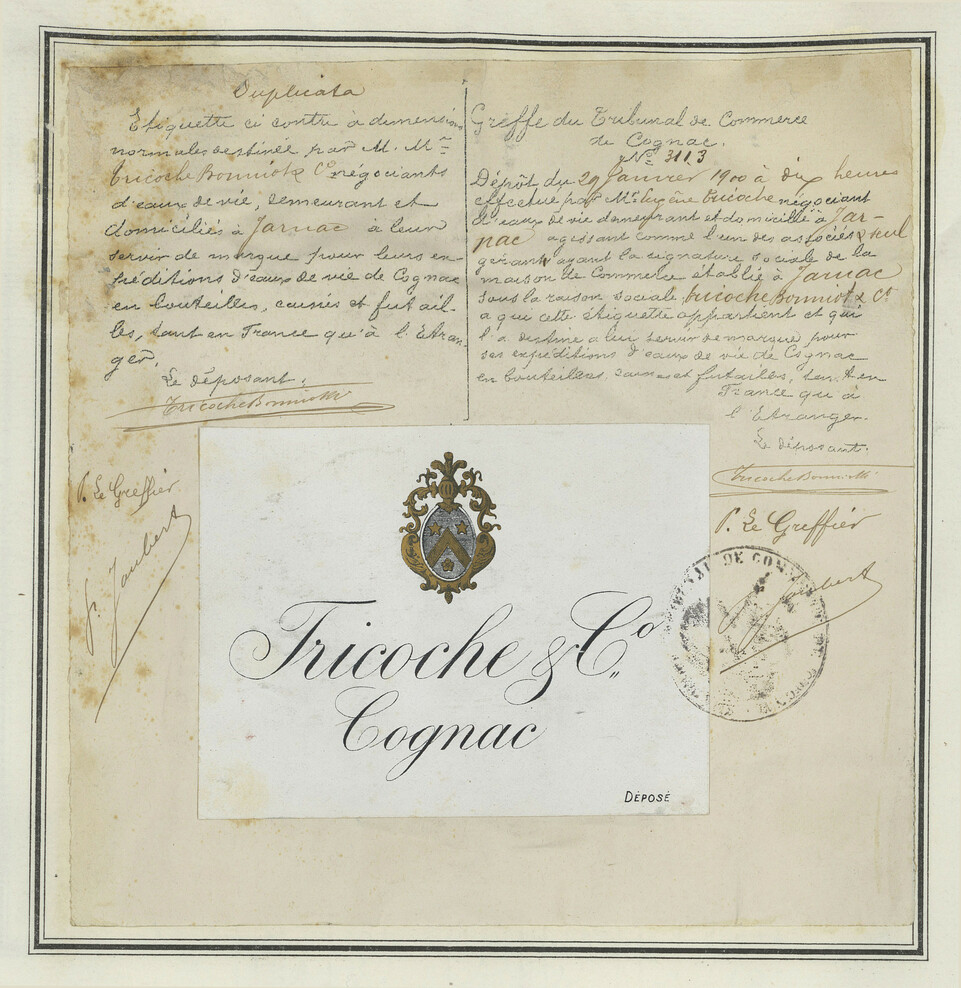 Duplicata
Etiquette ci contre à dimensions
normales destinée par M. Mrs
Tricoche Bonniot & Co négociants
d'eaux de vie, demeurant et
domiciliés à Jarnac à leur
servir de marque pour leurs ex-
péditions d'eaux de vie de Cognac
en bouteilles, caisses et futail-
les, tant en France qu'à l'Etran-
ger.
Le déposant.
Tricoche Bonniot & Co
P. Le Greffier
Joubert
Greffe du Tribunal de Commerce
de Cognac.
No 3113
Dépôt du 29 Janvier 1900 à dix heures
effectué par Mr Eugène Tricoche négociant
d'eaux de vie demeurant et domicilié à Jar-
nac agissant comme l'un des associés & seul
gérant ayant la signature sociale de la
maison de Commerce établie à Jarnac
sous la raison sociale Tricoche Bonniot & Co
a qui cette étiquette appartient et qui
l'a destine a lui servir de marque pour
ses expéditions d'eaux de vie de Cognac
en bouteilles caisses et futailles, tant en
France qu'à
l'Etranger.
Le déposant.
Tricoche Bonniot & Co
P. Le Greffier
Joubert
DE COM
Tricoche & Co
Cognac
DÉPOSÉ